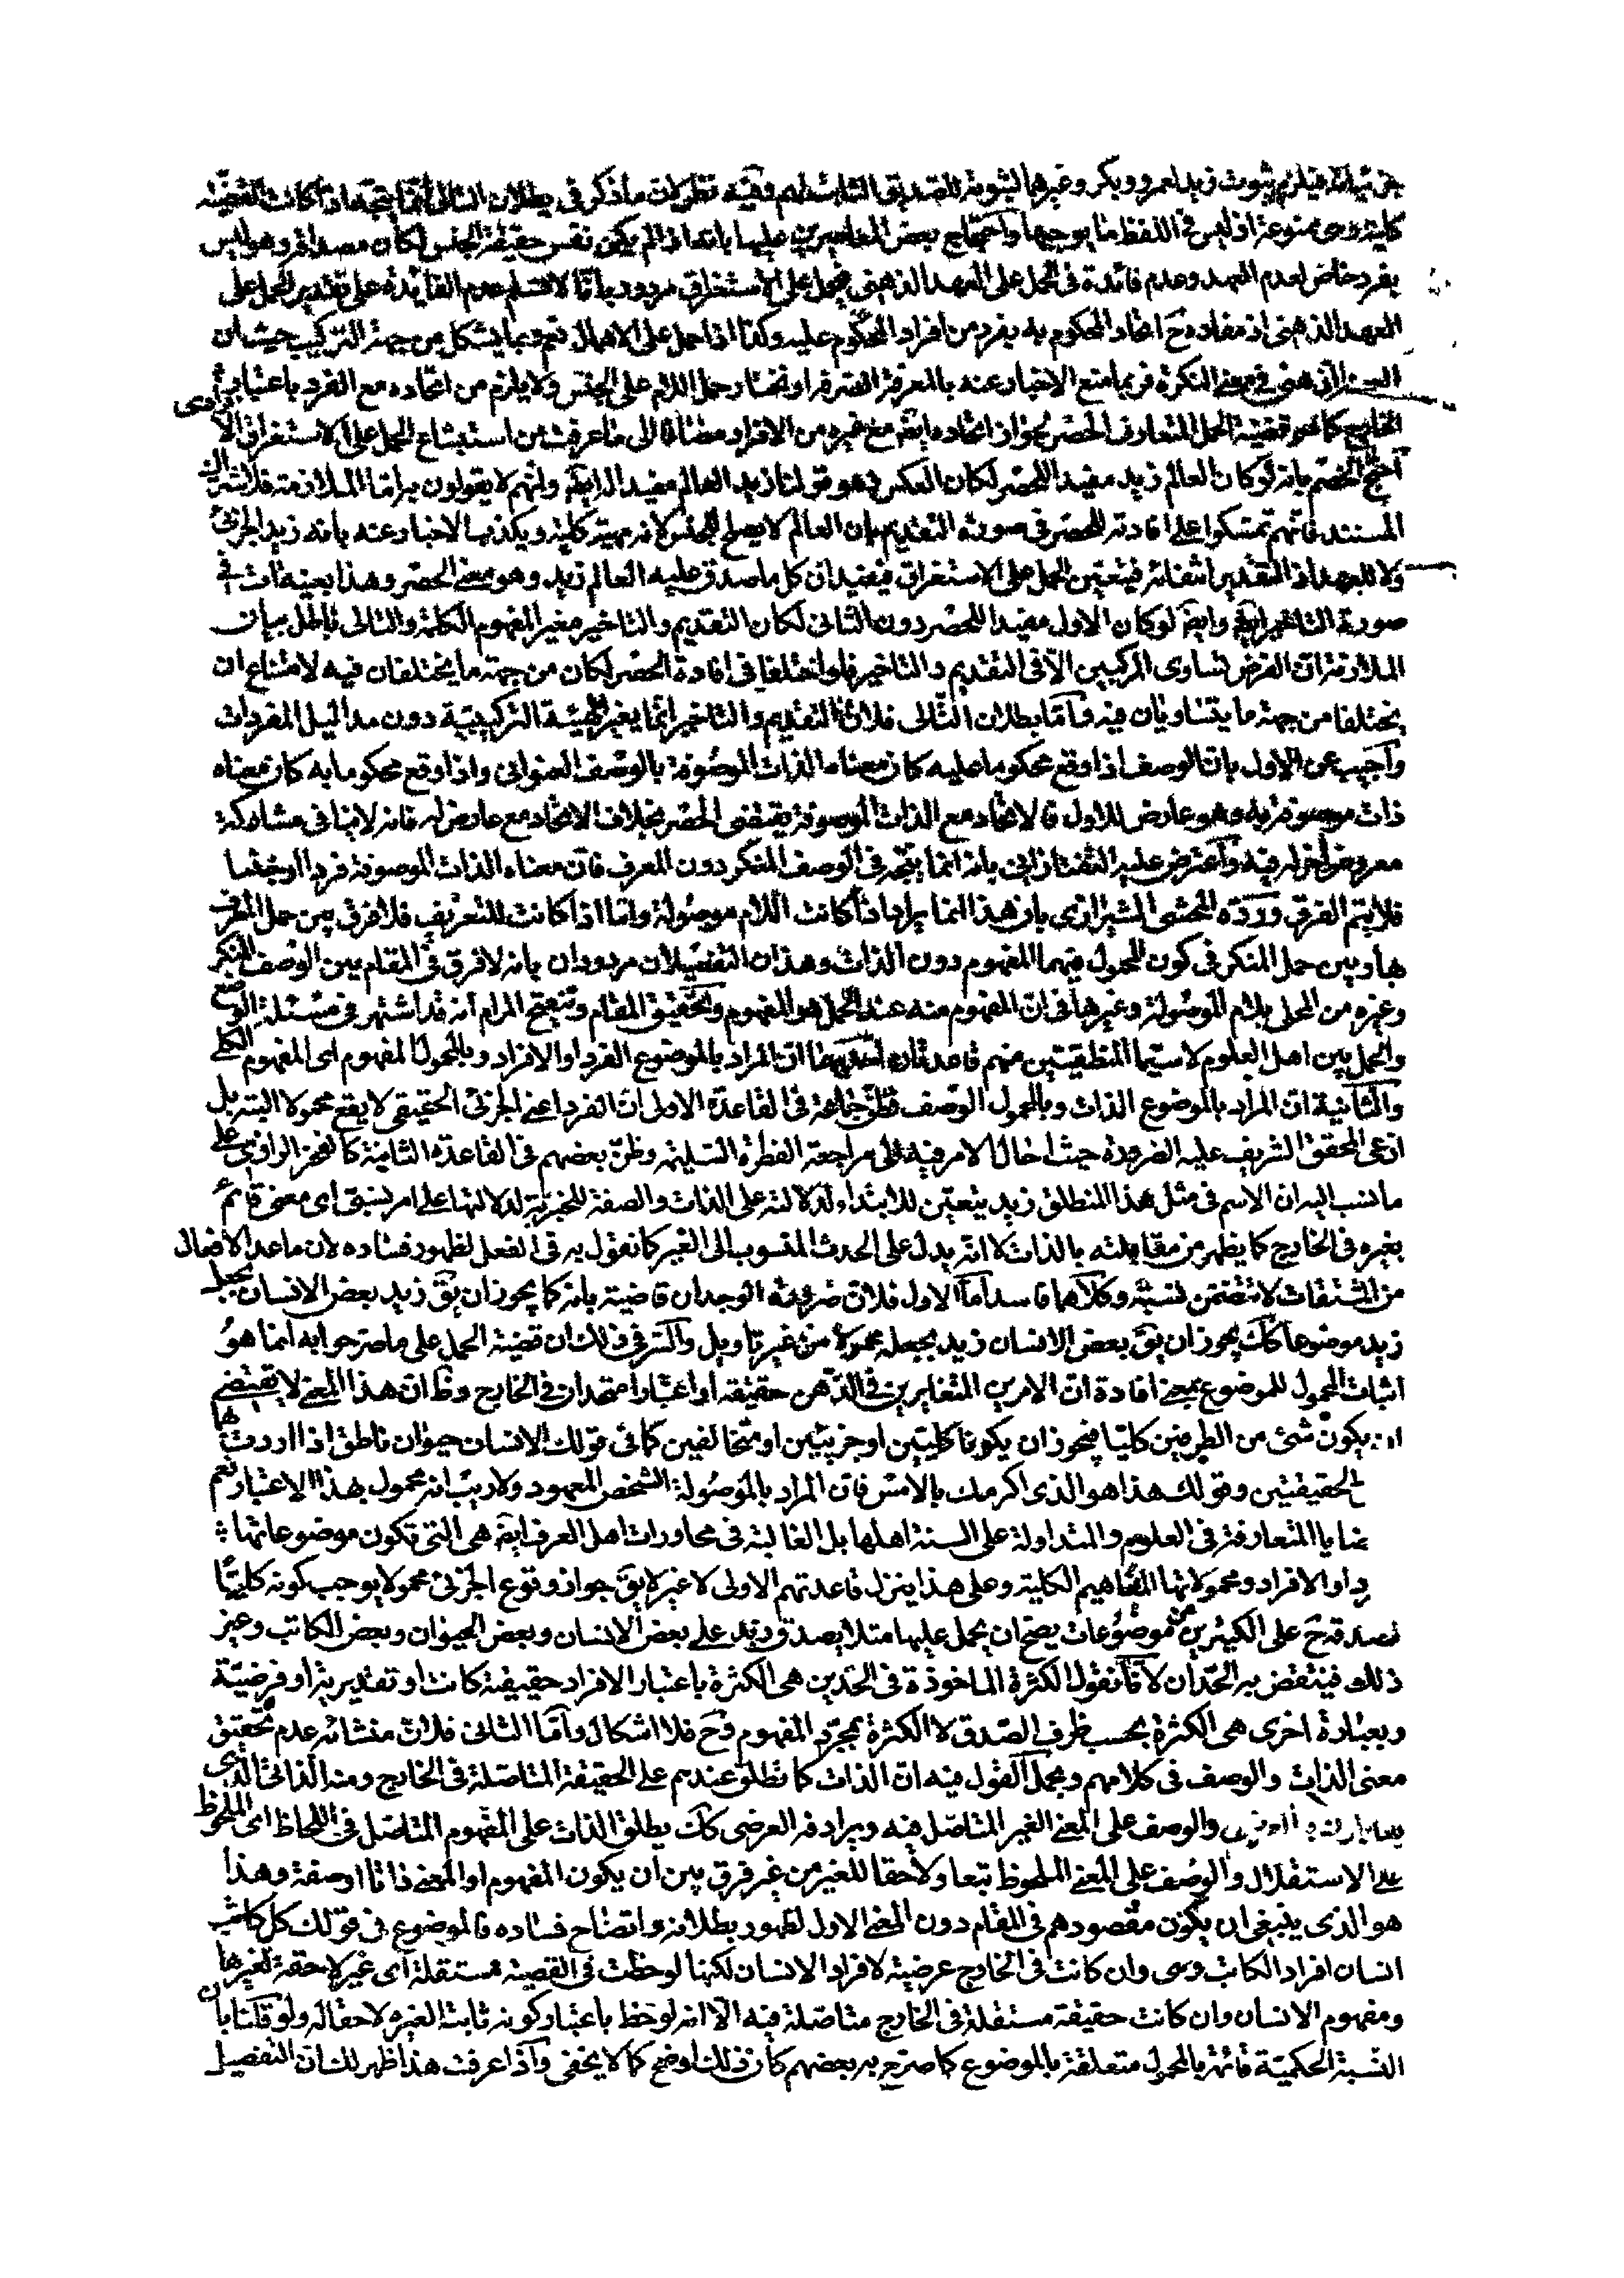 فيلزم ثبوت زيد لعمرو وبكر وغيرهما لثبوته للصديق الثابت لهم وفيه نظر لان ما ذكر في بطلان التالى انما يتجه اذا كانت القضيّة
كلية وهى ممنوعة اذ ليس في اللفظ ما يوجبها واحتجاج بعض المعاصرين عليها بانه اذا لم يكن نفس حقيقة الجنس لكان مصداقه وهو ليس
بفرد خاص لعدم العهد وعدم فائدة فى الحمل على العهد الذهنى فيحمل على الاستغراق مردود بانا لا نسلم عدم الفائدة على تقدير الحمل على
العهد الذهنى اذ مفاده ح اتحاد المحكوم به بفرد من افراد المحكوم عليه وكذا اذا حمل على الاهمال نعم ربما يشكل من جهة التركيب حيث ان
في معنى النكرة فربما منع الاخبار عنه بالمعرفة الصرفة او نختار حمل اللام على الجنس ولا يلزم من اتحاده مع الفرد باعتبار
الخارج كما هو قضية الحمل المتعارف الحصر لجواز اتحاده ايضا مع غيره من الافراد مضافا الى ما عرفت من استبشاع الحمل على الاستغراق الافرادى
احتج الخصم بانه لو كان العالم زيد مفيدا للحصر لكان العكس وهو قولنا زيد العالم مفيدا له ايضا وانهم لا يقولون به اما الملازمة فلاشتراك
المستند فانهم تمسكوا على افادته للحصر فى صورة التقديم بان العالم لا يصلح للجنس لانه مهية كلية ويكذبها الاخبار عنه بانه زيد الجزئى
ولا للعهد اذ التقدير انتفائه فيتعين الحمل على الاستغراق فيفيد ان كل ما صدق عليه العالم زيد وهو معنى الحصر وهذا بعينه ات في
صورة التاخير ايضا وايضا لو كان الاول مفيدا للحصر دون الثانى لكان التقديم والتاخير مغير المفهوم الكلمة والتالى باطل بيان
الملازمة ان الفرض تساوى المركبين الا فى التقديم والتاخير فلو اختلفا فى افادة الحصر لكان من جهة ما يختلفان فيه لامتناع ان
يختلفا من جهة ما يتساويان فيه واما بطلان التالى فلان التقديم والتاخير انما يغير الهيئة التركيبية دون مداليل المفردات
واجيب عن الاول بان الوصف اذا وقع محكوما عليه كان معناه الذات الموصوفة بالوصف العنوانى واذا وقع محكوما به كان معناه
ذات موصوفة به وهو عارض للاول فالاتحاد مع الذات الموصوفة يقتضى الحصر بخلاف الاتحاد مع عارض له فانه لا ينافى مشاركة
معروض اخر له فيه واعترض عليه التفتازانى بانه انما يتجه فى الوصف المنكر دون المعرف فان معناه الذات الموصوفة فردا او جنسا
فلا يتم الفرق ورده المحشى الشيرازى بان هذا انما يرد اذا كانت اللام موصولة واما اذا كانت للتعريف فلا فرق بين حمل المعرف
بها وبين حمل المنكر فى كون المحمول فيهما المفهوم دون الذات وهذان التفصيلان مردودان بانه لا فرق فى المقام بين الوصف المنكر
وغيره من المحلى بلام الموصولة وغيرها فى ان المفهوم منه عند الحمل هو المفهوم وتحقيق المقام وتنقيح المرام انه قد اشتهر فى مسئلة الوضع
والحمل بين اهل العلوم لا سيّما المنطقيين منهم قاعدتان احديهما ان المراد بالموضوع الفرد او الافراد وبالمحمول المفهوم اى المفهوم الكلى
والثانية ان المراد بالموضوع الذات وبالمحمول الوصف فظن جماعة فى القاعدة الاولى ان الفرد اعنى الجزئى الحقيقى لا يقع محمولا البتة بل
ادعى المحقق الشريف عليه الضرورة حيث احال الامر فيه الى مراجعة الفطرة السليمة وظن بعضهم فى القاعدة الثانية كالفخر الرازى على
ما نسب اليه ان الاسم فى مثل هذا المنطلق زيد يتعين للابتداء لدلالته على الذات والصفة للخبرية لدلالتها على امر نسبى اى معنى قائم
بغيره فى الخارج كما يظهر من مقابلته بالذات لا انه يدل على الحدث المنسوب الى الغير كما نقول به فى الفعل لظهور فساده لان ما عدا الافعال
من المشتقات لا تتضمن نسبة وكلاهما فاسد اما الاول فلان ضرورة الوجدان قاضية بانه كما يجوز ان يق زيد بعض الانسان بجعل
زيد موضوعا كك يجوز ان يق بعض الانسان زيد بجعله محمولا من غير تاويل والسر فى ذلك ان قضية الحمل على ما صرحوا به انما هو
اثبات المحمول للموضوع بمعنى افادة ان الامرين المتغايرين فى الذهن حقيقة او اعتبارا متحدان فى الخارج وظ ان هذا المعنى لا يقتضى
ان يكون شئ من الطرفين كليا فيجوز ان يكونا كليتين او جزئيتين او متخالفين كما فى قولك الانسان حيوان ناطق اذا اردت بها
الحقيقتين وقولك هذا هو الذى اكرمك بالامس فان المراد بالموصولة الشخص المعهود ولا ريب انه محمول بهذا الاعتبار نعم
ضايا المتعارفة فى العلوم والمتداولة على السنة اهلها بل الغالبة فى محاورات اهل العرف ايضا هى التى تكون موضوعاتها
رد او الافراد ومحمولاتها المفاهيم الكلية وعلى هذا ينزل قاعدتهم الاولى لا غير لا يق جواز وقوع الجزئى محمولا يوجب كونه كليا
لصدقه ح على الكثيرين من موضوعات يصح ان يحمل عليها مثلا يصدق زيد على بعض الانسان وبعض الحيوان وبعض الكاتب وغير
ذلك فينتقض به الحدان لانا نقول الكثرة الماخوذة فى الحدين هى الكثرة باعتبار الافراد حقيقية كانت او تقديرية او فرضيّة
وبعبارة اخرى هى الكثرة بحسب ظرف الصدق لا الكثرة بمجرد المفهوم وح فلا اشكال واما الثانى فلان منشائه عدم تحقيق
معنى الذات والوصف فى كلامهم ومجمل القول فيه ان الذات كما تطلق عندهم على الحقيقة المتاصلة فى الخارج ومنه الذاتى الذى
والوصف على المعنى الغير المتاصل فيه ويرادفه العرضى كك يطلق الذات على المفهوم المتاصل فى اللحاظ اى الملحوظ
على الاستقلال والوصف على المعنى الملحوظ تبعا ولاحقا للغير من غير فرق بين ان يكون المفهوم او المعنى ذاتا او صفة وهذا
هو الذى ينبغى ان يكون مقصودهم فى المقام دون المعنى الاول لظهور بطلانه واتضاح فساده فالموضوع فى قولك كل كاتب
انسان افراد الكاتب وهى وان كانت فى الخارج عرضية لافراد الانسان لكنها لوحظت فى القضية مستقلة اى غير لاحقة لغيرها
ومفهوم الانسان وان كانت حقيقة مستقلة فى الخارج متاصلة فيه الا انه لوحظ باعتبار كونه ثابتا لغيره لاحقا له ولو قلنا بان
النسبة الحكمية قائمة بالمحمول متعلقة بالموضوع كما صرح به بعضهم كان ذلك اوضح كما لا يخفى واذا عرفت هذا ظهر لك ان التفصيل